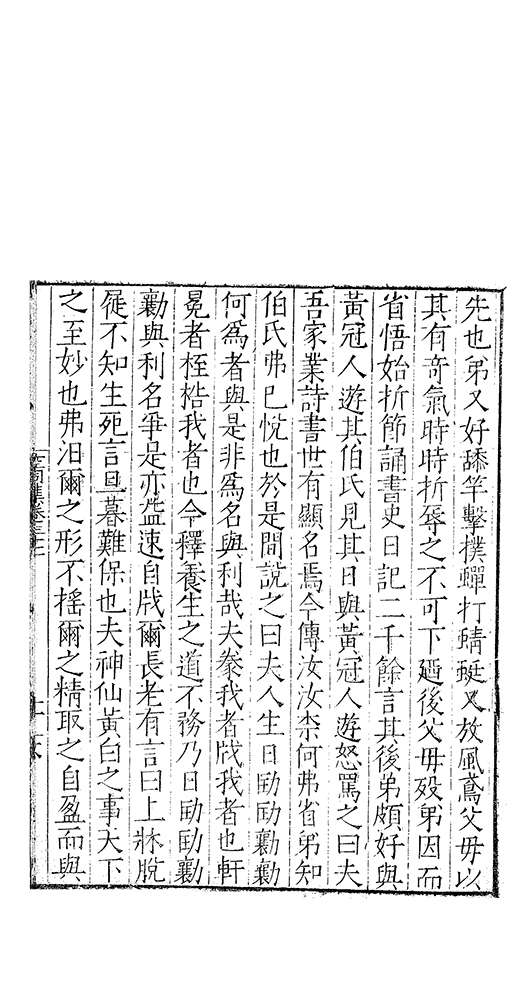 先也弟又好舔竿擊撲蟬打蜻蜓又放風鳶父毋以
其有竒氣時時折辱之不可下廼後父毋殁弟因而
省悟始折節誦書史日記二千餘言其後弟頗好與
黃冠人遊其伯氏見其日與黃冠人遊怒罵之曰夫
吾家業詩書世有顯名焉今傳汝汝柰何弗省弟知
伯氏弗巳恱也於是間說之曰夫人生日勖勖勷勷
何爲者與是非爲名與利哉夫豢我者戕我者也軒
冕者桎梏我者也今釋養生之道不務乃日勖勖勷
勷與利名爭是亦葢速自戕爾長老有言曰上牀脫
屣不知生死言旦暮難保也夫神仙黃白之事天下
之至妙也弗汨爾之形不揺爾之精取之自盈而與